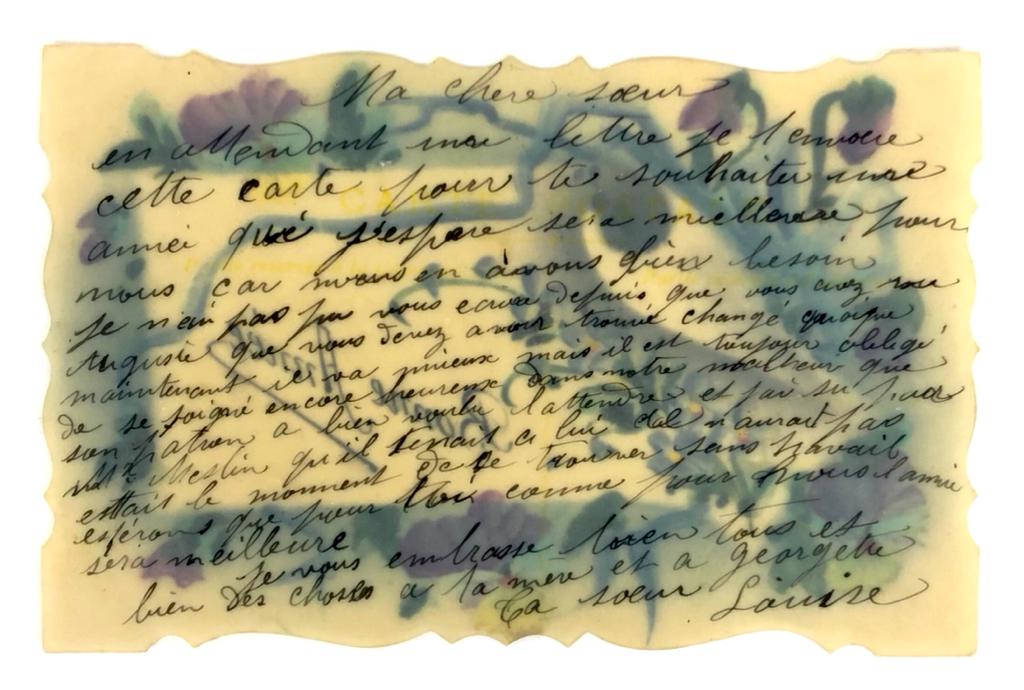 Ma chere sœur
en attendant une lettre je t'envoie
cette carte pour te souhaiter une
année qué j'espere sera meilleure pour
nous car nous en avons bien besoin
je n'ai pas pu vous ecrire depuis que vous avez vu
Auguste que vous devez avoir trouvé changé quoique
maintenant il va mieux mais il est toujour obligé
de se soigné encore heureux dans notre malheur que
son patron a bien voulu l'attendre et j'ai su par
Me Meslin qu'il tenait a lui cal n'aurait pas
ettait le moment de se trouver sans travail
espérons que pour toi comme pour nous l'année
sera meilleure
je vous embrasse bien tous et
bien des choses a ta mère et a georgette
Ta sœur Louise
Bonne Année